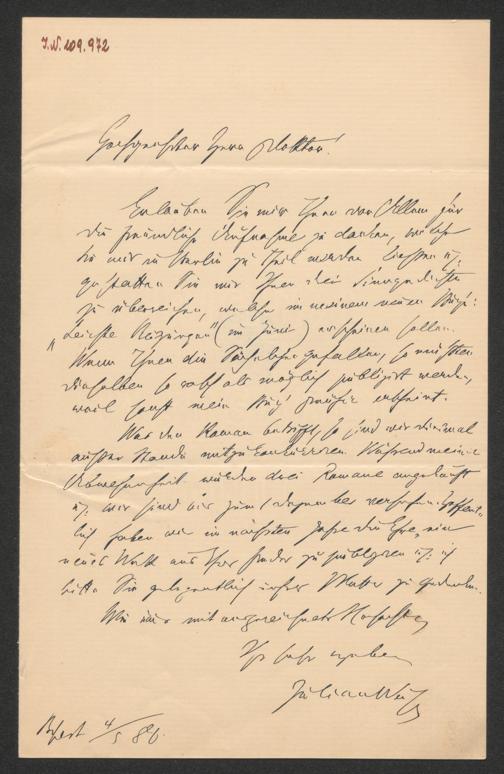 J.N. 109.972
Hochgeehrter Herr Doktor!
Erlauben Sie mir Ihnen vor Allem für
die freundliche Aufnahme zu danken, welche
Sie mir in Berlin zu Theil werden ließen u.
gestatten Sie mir Ihnen drei Sinngedichte
zu überreichen, welche in meinem neuen Buch:
"Leichte Waare" (im Juni) erscheinen sollen.
Wenn Ihnen die gefallen, so müßten
dieselben so rasch als möglich publizirt werden,
weil sonst mein Buch früher erscheint.
Was den Roman betrifft, so sind wir diesmal
außer Stande mitzukonkurriren. Während meiner
Abwesenheit wurden drei Romane angekauft
u. wir sind bis zum Dezember versehen. Hoffent-
lich haben wir im nächsten Jahre die Ehre, ein
neues Werk aus Ihrer Feder zu publiziren u. ich
bitte Sie gelegentlich unseres Blattes zu gedenken.
Wie immer mit ausgezeichneter Hochachtung
Ihr sehr ergebener
Julian Weiß
Bpest 4/5 86.